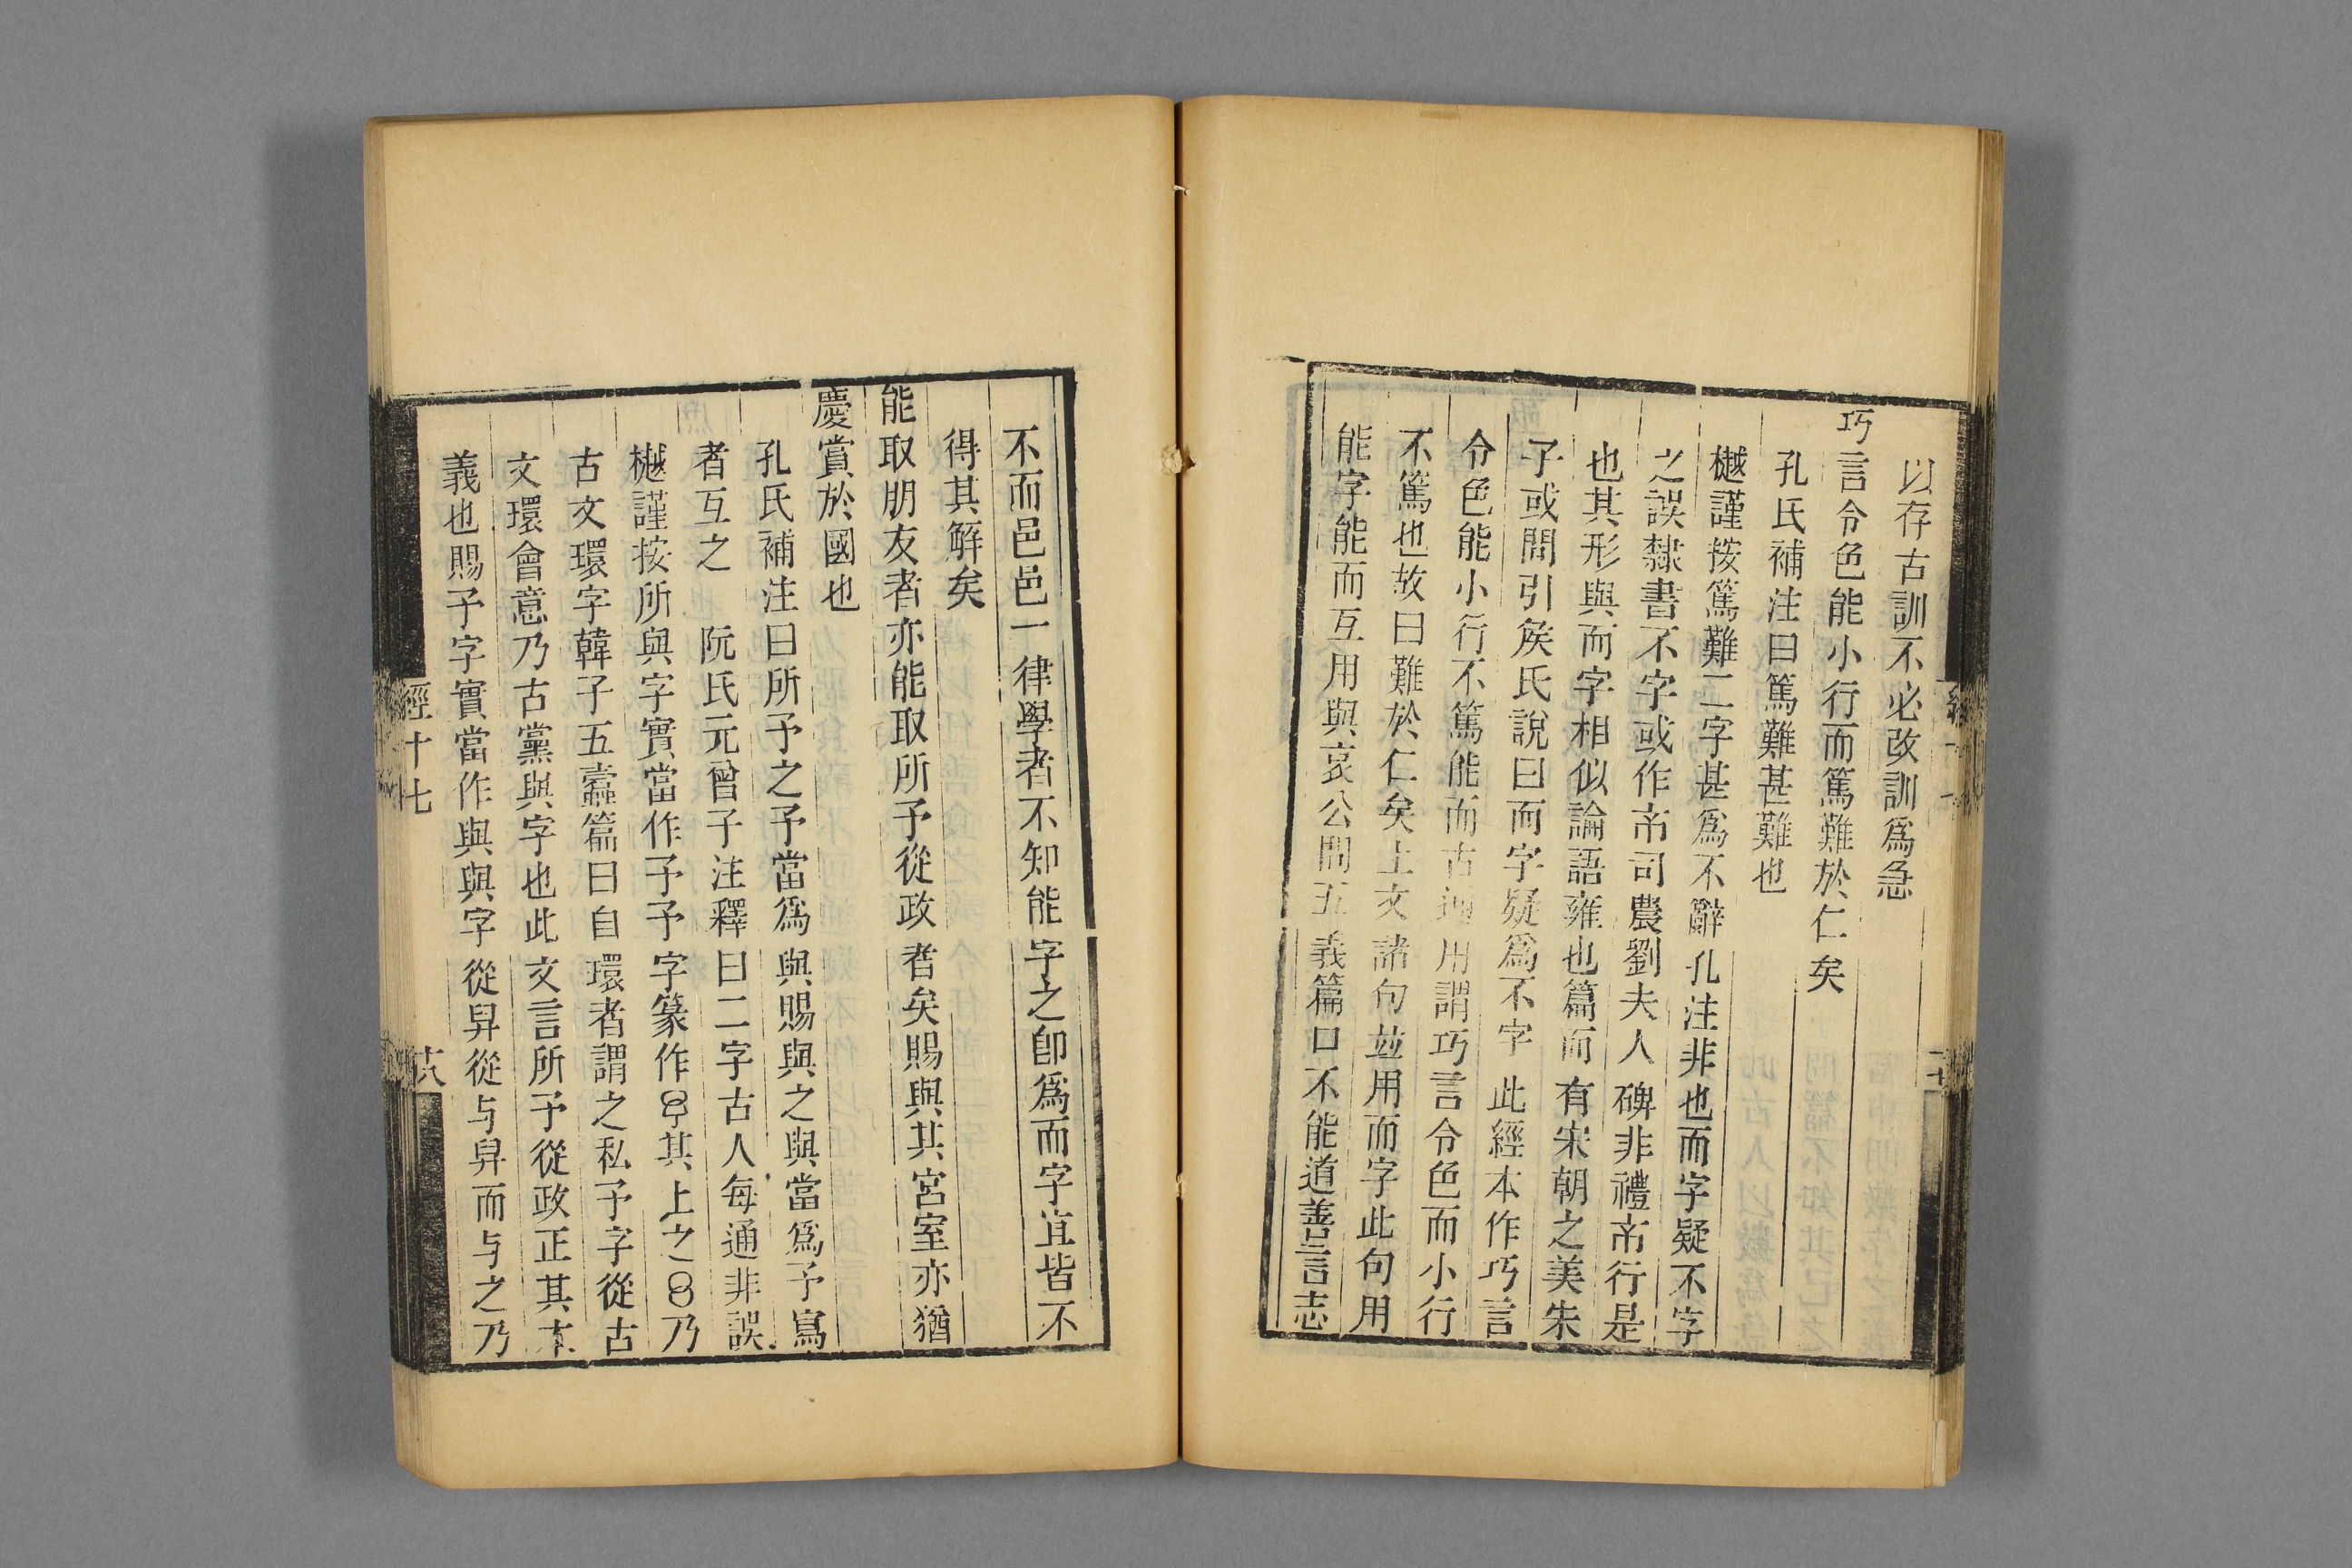 以存古訓不必改訓爲急
巧言令色能小行而篤難於仁矣
孔氏補注曰篤難甚難也
樾謹按篤難二字甚爲不辭孔注非也而字疑不字
之誤隸書不字或作𠕲司農劉夫人碑非禮𠕲行是
也其形與而字相似論語雍也篇而有宋朝之美朱
子或問引矦氏說曰而字疑爲不字此經本作巧言
令色能小行不篤能而古通用謂巧言令色而小行
不篤也故曰難於仁矣上文諸句並用而字此句用
能字能而互用與哀公問五義篇口不能道善言志
不而邑邑一律學者不知能字之卽爲而字宜皆不
得其解矣
能取朋友者亦能取所予從政者矣賜與其宮室亦猶
慶賞於國也
孔氏補注曰所予之予當爲與賜與之與當爲予寫
者互之 阮氏元曾子注釋曰二字古人每通非誤
樾謹按所與字實當作予予字篆作其上之乃
古文環字韓子五蠹篇曰自環者謂之私予字從古
文環會意乃古黨與字也此文言所予從政正其本
義也賜予字實當作與與字從舁從与舁而与之乃
經十七